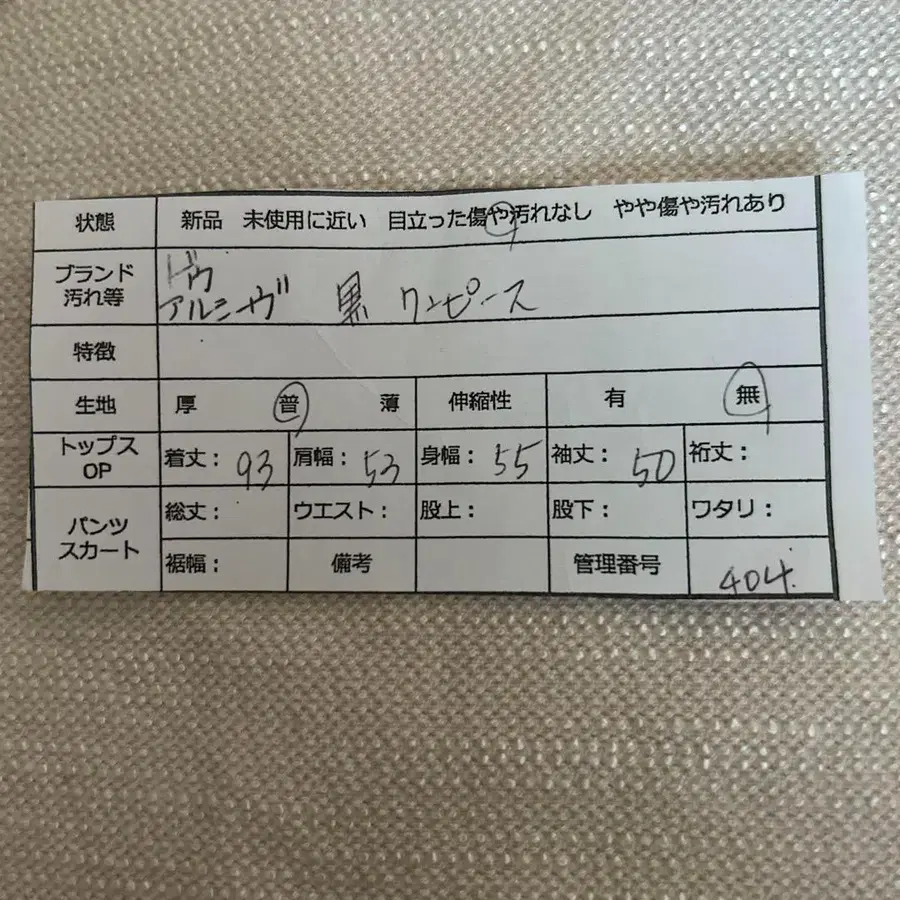 状態 新品 未使用に近い 目立った傷や汚れなし やや傷や汚れあり
ブランド 汚れ等 ドゥ
アルシーヴ 黒 ワンピース
特徴
生地 厚 普 薄 伸縮性 有 無
トップス OP 着丈： 93 肩幅： 53 身幅： 55 袖丈： 50 裄丈：
パンツ スカート 総丈： ウエスト： 股上： 股下： ワタリ：
裾幅： 備考 管理番号 404.